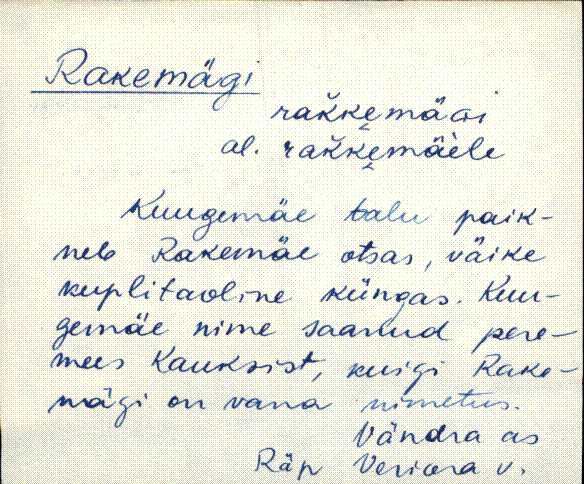 Rakemägi
rak̆kemägi
al. rak̆kemäele
Kuugemäe talu paik-
neb Rakemäe otsas, väike
kuplitaoline küngas. Kuu-
gemäe nime saanud pere-
mees Kauksist, kuigi Rake-
mägi on vana nimetus.
Vändra as
Räp Veriora v.